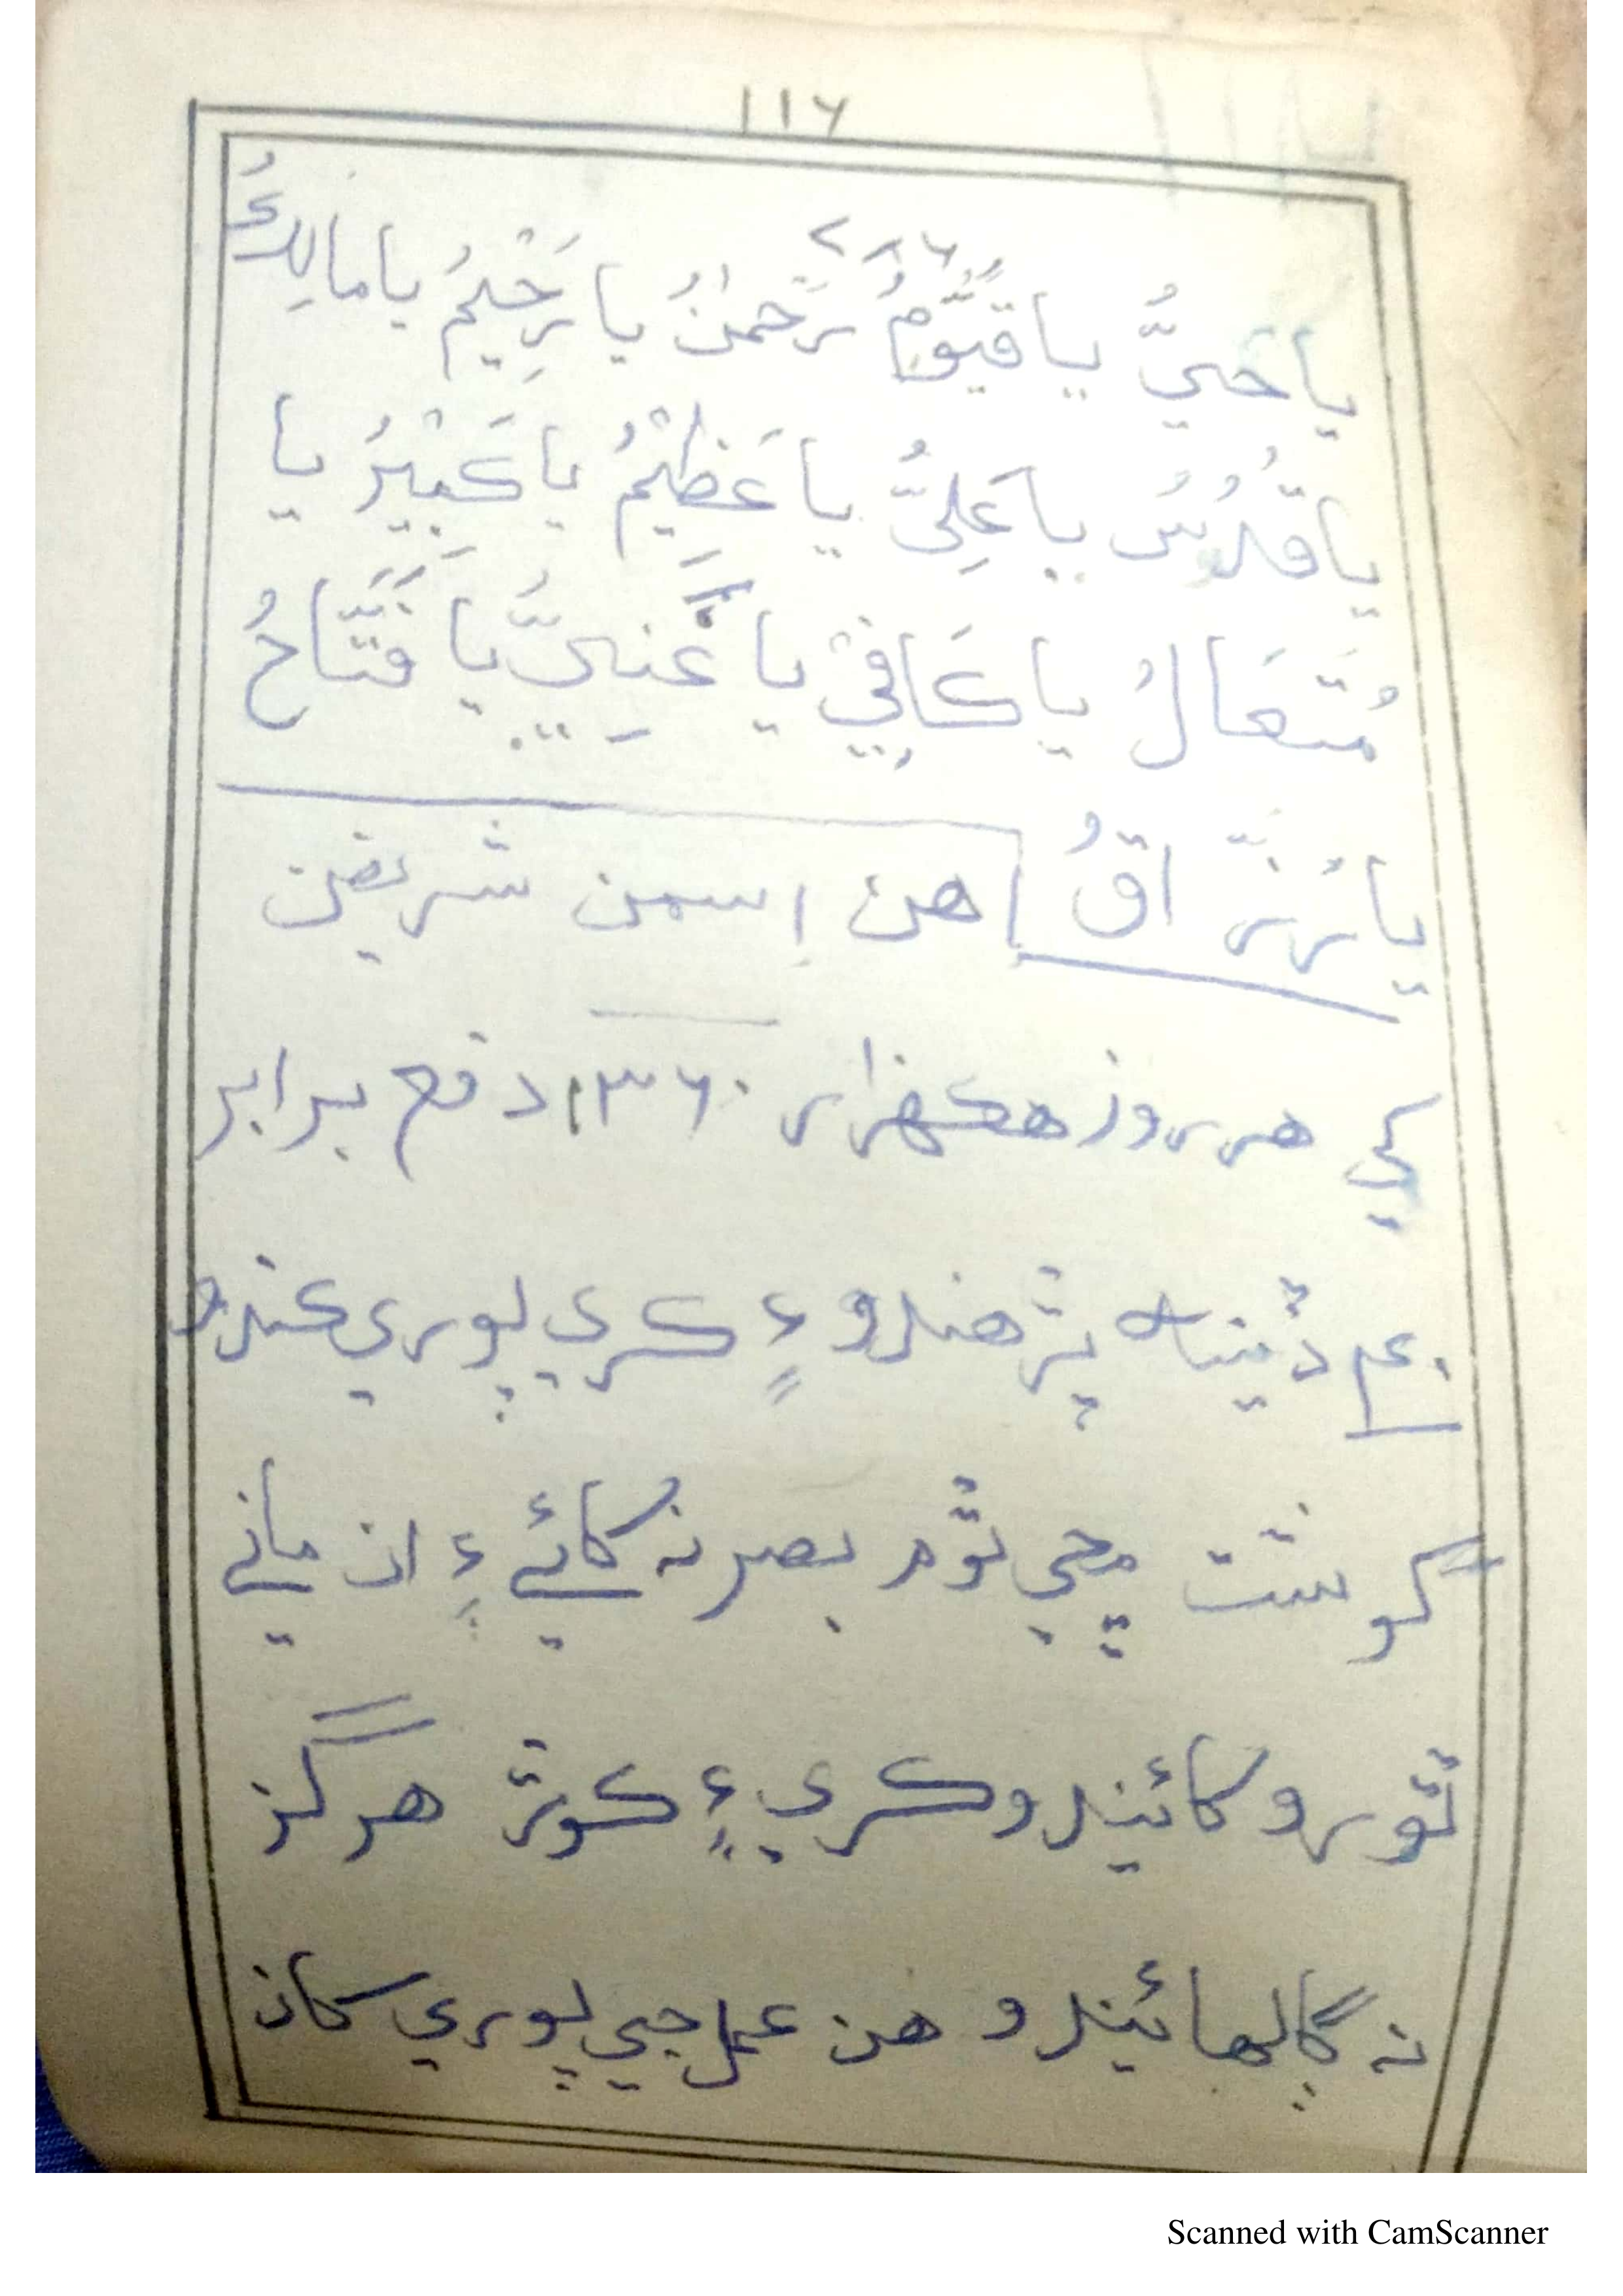 ١١٦
٧٨٦
يا حَيُّ يا قَيُّوْمُ رَحْمٰنُ يا رَحِيْمُ يا مالِكُ
يا قُدُّسُ يا عَلِيُّ يا عَظِيْمُ يا كَبِيْرُ يا
مُتَعَالُ يا كَافِيْ يا غَنِيُّ يا فَتَّاحُ
يا رَزَّاقُ اهن اِسمن شريفن
کي هر روز هڪهزار ١٣٦٠ دفع برابر
٤٠ ڏينهه پڙهندو ۽ ڪري پوري ڪندو
گوشت مڇي ٿوم بصر نه کائي ۽ ان ماني
ٿورو کائيندو ڪري ۽ ڪوڙ هرگز
نه ڳالهائيندو هن عمل جي پوري ڪان
Scanned with CamScanner